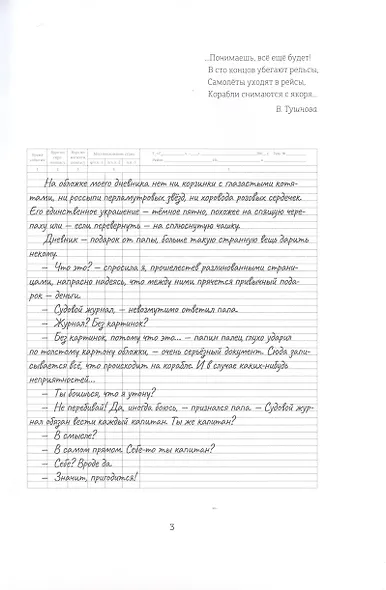 ...Понимаешь, всё ещё будет!
В сто концов убегают рельсы,
Самолёты уходят в рейсы,
Корабли снимаются с якоря...
В. Тушнова
На обложке моего дневника нет ни корзинки с глазастыми котя-
тами, ни россыпи перламутровых звёзд, ни хоровода розовых сердечек.
Его единственное украшение — тёмное пятно, похожее на спящую чере-
паху или — если перевернуть — на сплюснутую чашку.
Дневник — подарок от папы, больше такую странную вещь дарить
некому.
— Что это? — спросила я, прошелестев разлинованными страни-
цами, напрасно надеясь, что между ними прячется привычный пода-
рок — деньги.
— Судовой журнал, — невозмутимо ответил папа.
— Журнал? Без картинок?
— Без картинок, потому что это... — папин палец глухо ударил
по толстому картону обложки, — очень серьёзный документ. Сюда запи-
сывается всё, что происходит на корабле. И в случае каких-нибудь
неприятностей...
— Ты боишься, что я утону?
— Не перебивай! Да, иногда боюсь, — признался папа. — Судовой жур-
нал обязан вести каждый капитан. Ты же капитан?
— В смысле?
— В самом прямом. Себе-то ты капитан?
— Себе? Вроде да.
— Значит, пригодится!
3